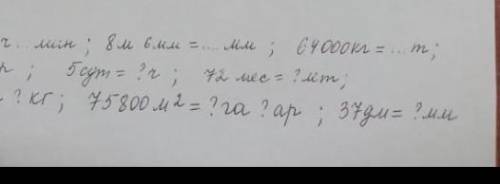 ч ... мин ; 8м 6мм = ... мм ; 64000кг = ... т ;
р ; 5сут = ? ч ; 72 мес = ? лет ;
? кг ; 75800 м² = ? га ? ар ; 37дм = ? мм